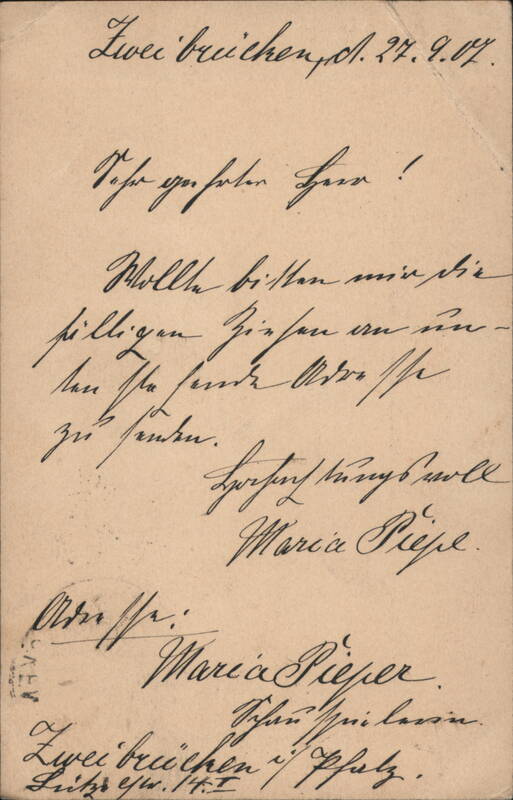 Zweibrücken, d. 27.9.07.
Sehr geehrter Herr!
Wollte bitten mir die
fälligen Ziehen an un-
ten stehende Adresse
zu senden.
Hochachtungsvoll
Maria Piepe.
Adresse:
Maria Pieper.
Schauspielerin.
Zweibrücken i/Pfalz.
14.I